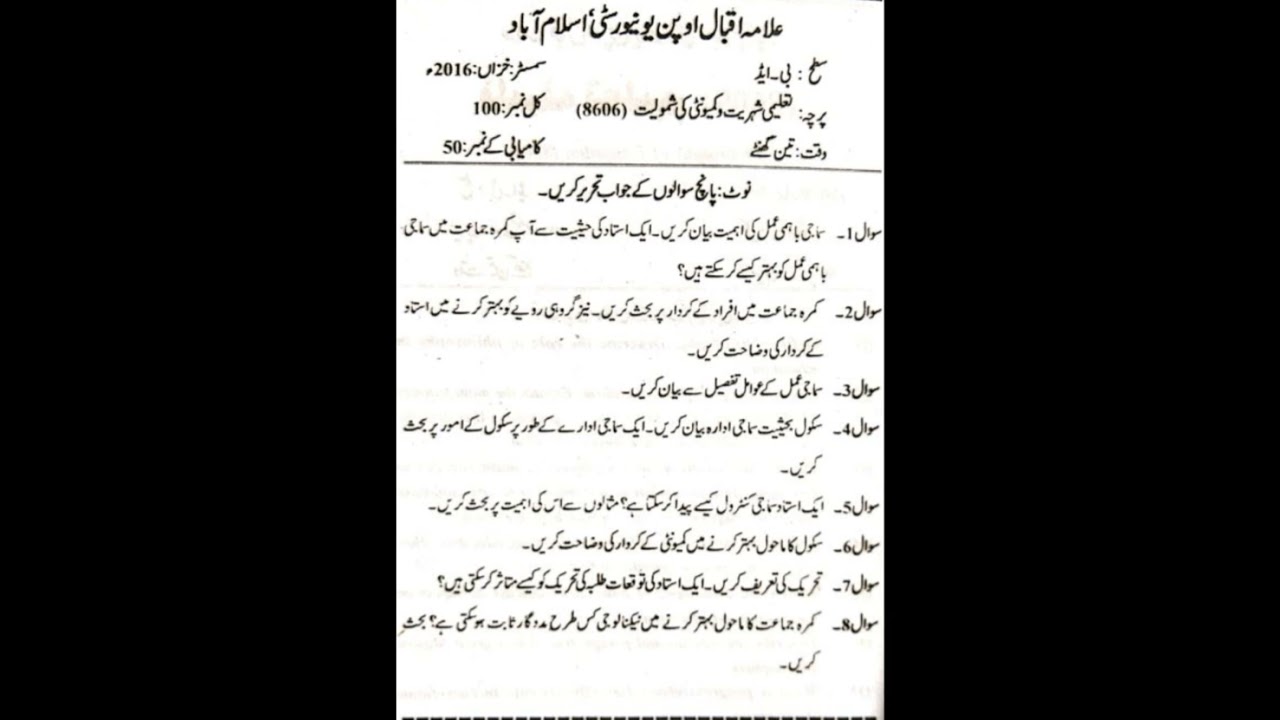 علامہ اقبال اوپن یونیورسٹی، اسلام آباد
سطح: بی۔ایڈ سمسٹر: خزاں: 2016ء
پرچہ: تعلیمی شہریت و کمیونٹی کی شمولیت (8606) کل نمبر: 100
وقت: تین گھنٹے کامیابی کے نمبر: 50
نوٹ: پانچ سوالوں کے جواب تحریر کریں۔
سوال 1۔ سماجی باہمی عمل کی اہمیت بیان کریں۔ ایک استاد کی حیثیت سے آپ کمرہ جماعت میں سماجی
باہمی عمل کو بہتر کیسے کر سکتے ہیں؟
سوال 2۔ کمرہ جماعت میں افراد کے کردار پر بحث کریں۔ نیز گروہی رویے کو بہتر کرنے میں استاد
کے کردار کی وضاحت کریں۔
سوال 3۔ سماجی عمل کے عوامل تفصیل سے بیان کریں۔
سوال 4۔ سکول بحیثیت سماجی ادارہ بیان کریں۔ ایک سماجی ادارے کے طور پر سکول کے امور پر بحث
کریں۔
سوال 5۔ ایک استاد سماجی کنٹرول کیسے پیدا کر سکتا ہے؟ مثالوں سے اس کی اہمیت پر بحث کریں۔
سوال 6۔ سکول کا ماحول بہتر کرنے میں کمیونٹی کے کردار کی وضاحت کریں۔
سوال 7۔ تحریک کی تعریف کریں۔ ایک استاد کی توقعات طلبہ کی تحریک کو کیسے متاثر کر سکتی ہیں؟
سوال 8۔ کمرہ جماعت کا ماحول بہتر کرنے میں ٹیکنالوجی کس طرح مددگار ثابت ہو سکتی ہے؟ بحث
کریں۔